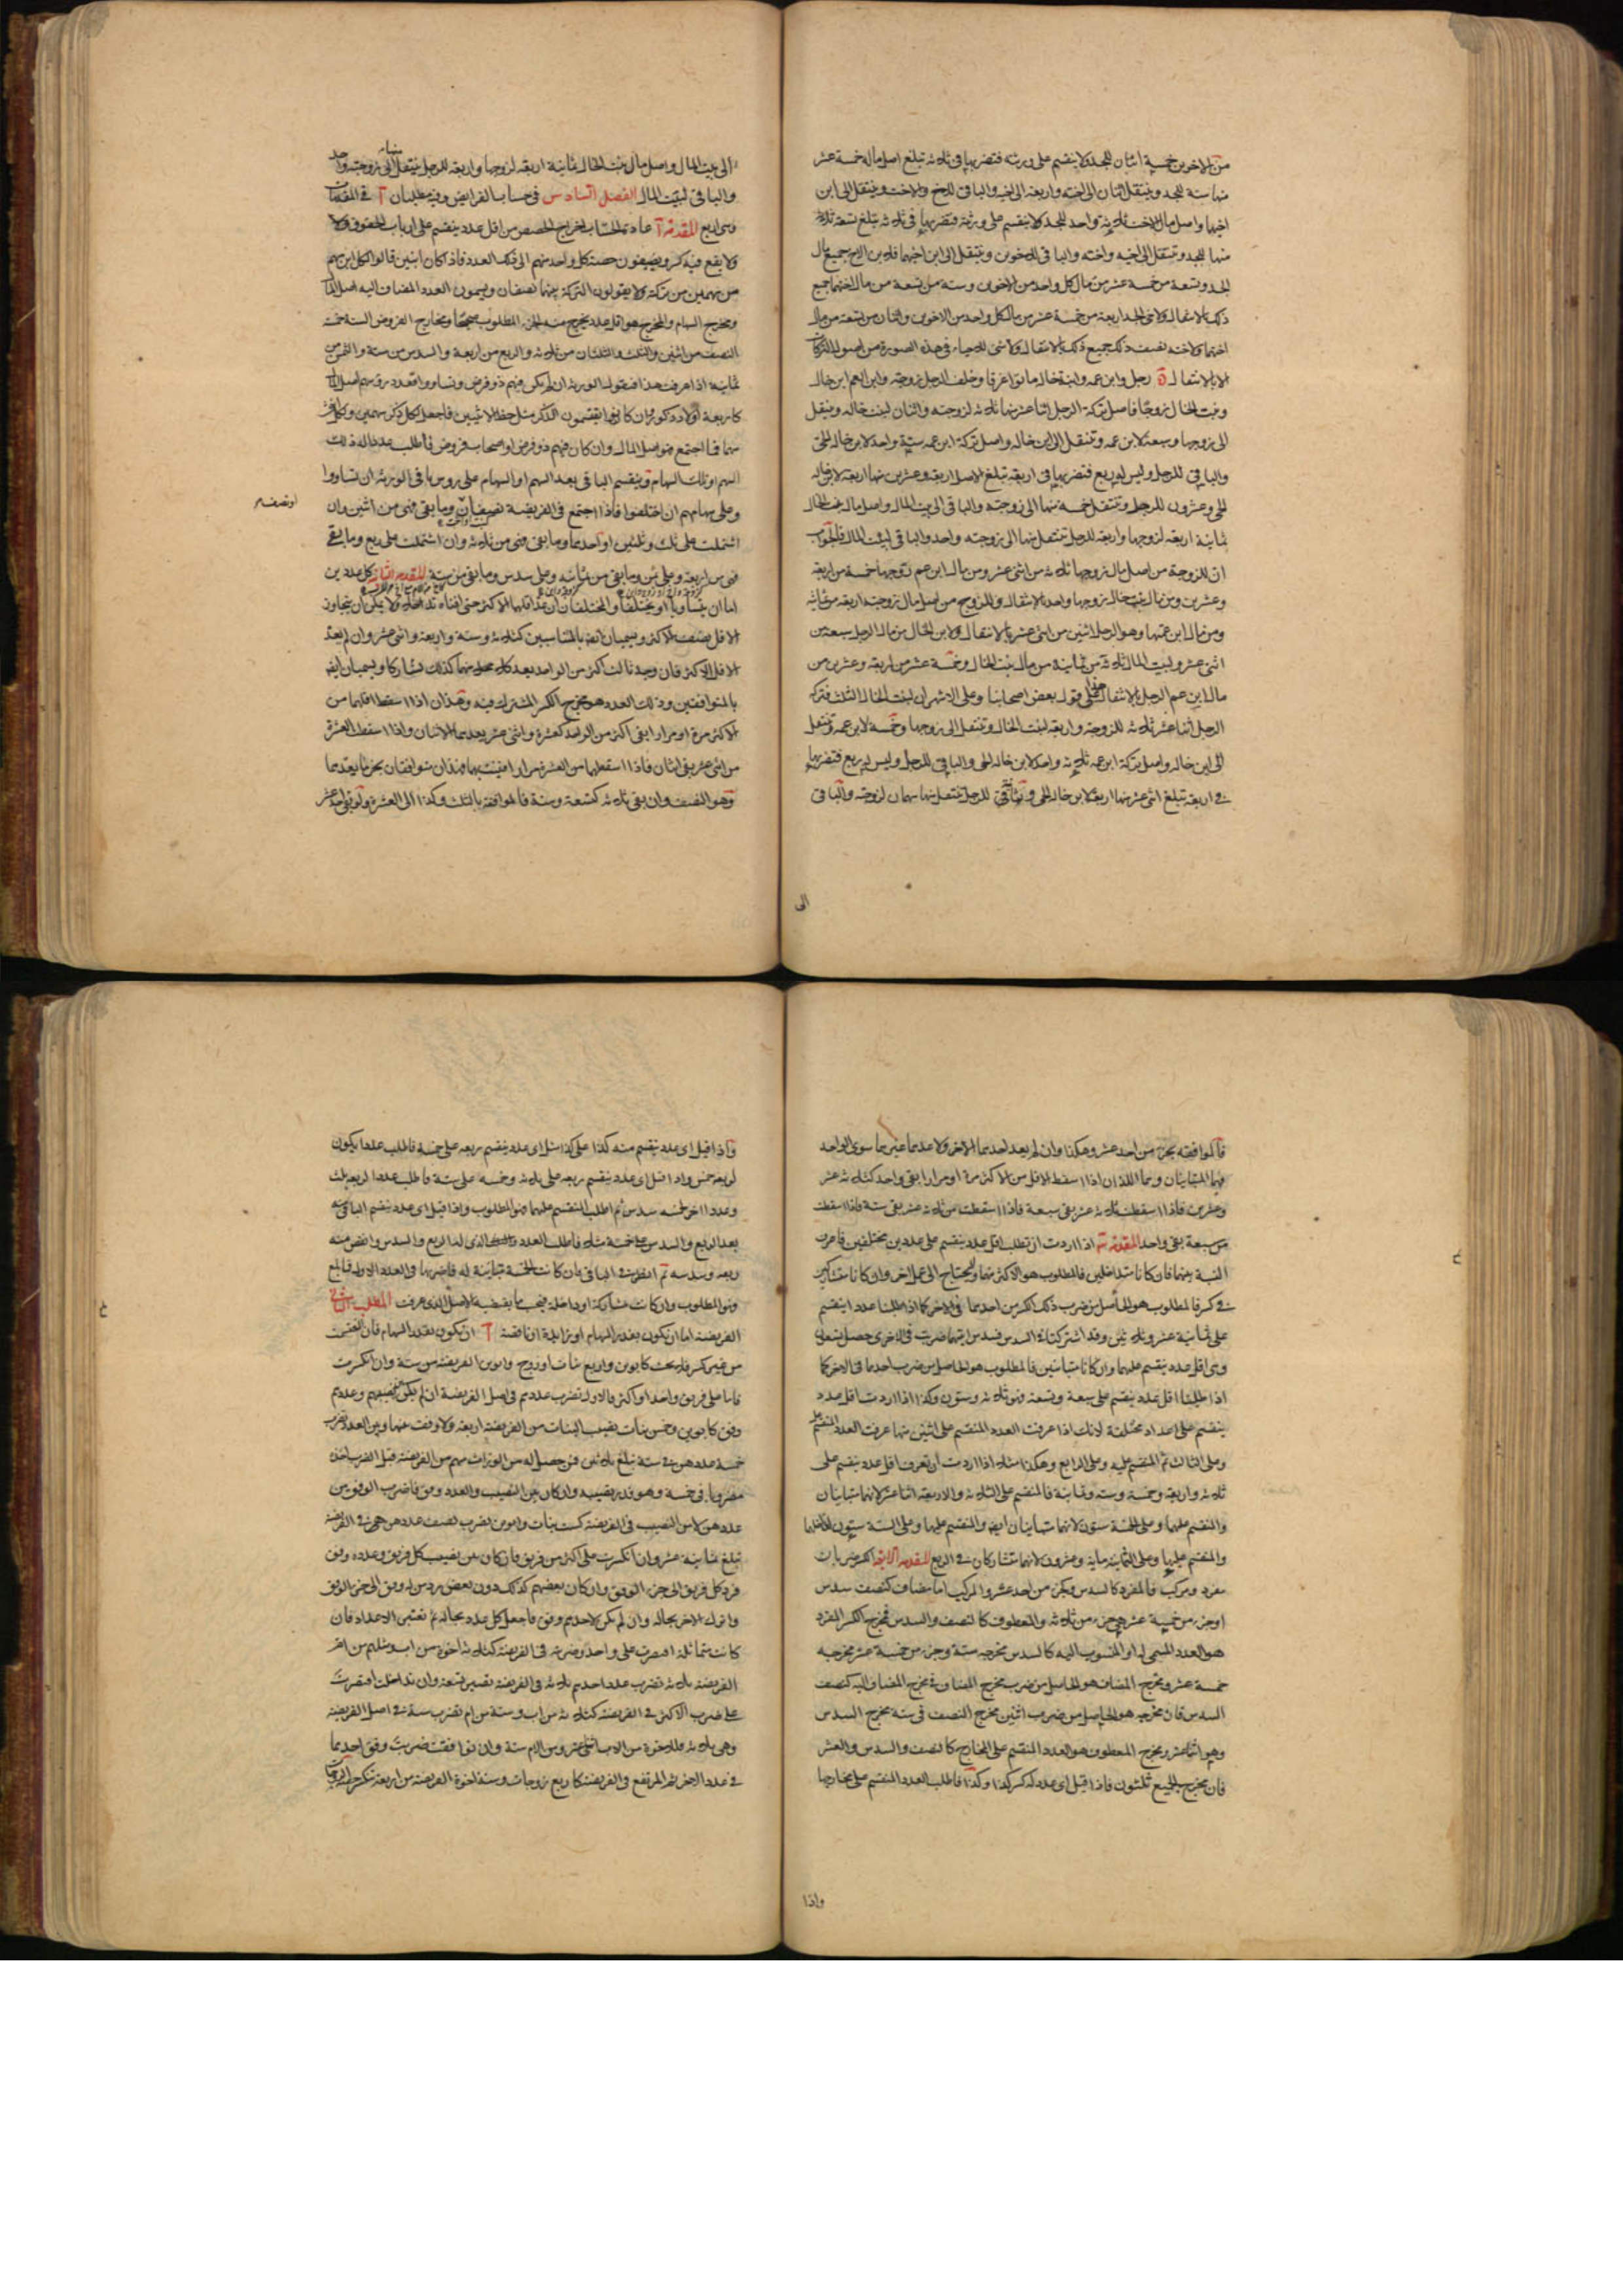 من الاخوين خمسة اثنان للجد لا ينقسم على ورثته فتضربها في ثلاثة تبلغ اصل ماله خمسة عشر
منها ستة للجد وينتقل اثنان الى اخته واربعة الى اخيه والباقي للاخ والاخت وينتقل الى ابن
اخيها واصل مال الاخت ثلاثة واحد للجد لا ينقسم على ورثته فتضربها في ثلاثة تبلغ تسعة ثلاثة
منها للجد وتنتقل الى اخيه واخته والباقي للاخوين وينتقل الى ابن اخيهما فلابن الاخ جميع مال
الجد وتسعة من خمسة عشر من مال كل واحد من الاخوين وستة من تسعة من مال اختهما جميع
ذلك بالانتقال ولاخي الجد اربعة من خمسة عشر من مال كل واحد من الاخوين واثنان من تسعة من مال
اختهما ولاخته نصف ذلك جميع ذلك بالانتقال ولا شئ للاحياء في هذه الصورة من اصول التركات
الا بالانتقال ة رجل وابن عمه وابنة خاله ماتوا غرقا وخلف الرجل زوجته وابن العم ابن خاله
وبنت الخال زوجا فاصل تركة الرجل اثنا عشر منها ثلاثة لزوجته واثنان لبنت خاله وينقل
الى زوجها وسبعة لابن عمه وتنتقل الى ابن خاله واصل تركة ابن عمه ستة واحد لابن خاله الحي
والباقي للرجل وليس له ربع فتضربها في اربعة تبلغ الاصل اربعة وعشرين منها اربعة لابن خاله
الحي وعشرون للرجل وتنتقل خمسة منها الى زوجته والباقي الى بيت المال واصل مال بنت الخال
ثمانية اربعة لزوجها واربعة للرجل تنتقل منها الى زوجته واحد والباقي لبيت المال فالجواب
ان للزوجة من اصل مال زوجها ثلاثة من اثني عشر ومن مال ابن عم زوجها خمسة من اربعة
وعشرين ومن مال بنت خال زوجها واحد بالانتقال وللزوج من اصل مال زوجته اربعة من ثمانية
ومن مال ابن عمتها وهو الرجل اثنين من اثني عشر بالانتقال ولابن الخال من مال الرجل سبعة من
اثني عشر ولبيت المال ثلاثة من ثمانية من مال بنت الخال وخمسة عشر من اربعة وعشرين من
مال ابن عم الرجل بالانتقال هذا على قول بعض اصحابنا وعلى الاشهر ان لبنت الخال الثلث فتركة
الرجل اثنا عشر ثلاثة للزوجة واربعة لبنت الخال وتنتقل الى زوجها وخمسة لابن عمه وتنتقل
الى ابن خاله واصل تركة ابن عمه ثلاثة واحد لابن خاله الحي والباقي للرجل وليس له ربع فتضربها
في اربعة تبلغ اثني عشر منها اربعة لابن خاله الحي وثمانية للرجل تنتقل منها سهمان لزوجته والباقي
الى
الى بيت المال واصل مال بنت الخال ثمانية اربعة لزوجها واربعة للرجل ينتقل منها الى زوجته واحد
والباقي لبيت المال الفصل السادس في حساب الفرايض وفيه مطلبان آ في المقدمات
وهي اربع المقدمة آ عادة الحساب اخراج الحصص من اقل عدد ينقسم على ارباب الحقوق
ولا يقع فيه كسر ويضيفون حصة كل واحد منهم الى ذلك العدد فاذا كان ابنين قالوا لكل ابن سهم
من سهمين من تركته ولا يقولون التركة بينهما نصفان ويسمون العدد المضاف اليه اصل المال
ومخرج السهام والمخرج هو اقل عدد يخرج منه الجزء المطلوب صحيحا ومخارج الفروض الستة خمسة
النصف من اثنين والثلث والثلثان من ثلاثة والربع من اربعة والسدس من ستة والثمن من
ثمانية اذا عرفت هذا فنقول الورثة ان لم يكن فيهم ذو فرض وتساووا فعدد رؤسهم اصل المال
كاربعة اولاد ذكور وان كانوا يقتسمون للذكر مثل حظ الانثيين فاجعل لكل ذكر سهمين ولكل انثى
سهما فما اجتمع فهو اصل المال وان كان فيهم ذو فرض او اصحاب فروض فاطلب عددا له ذلك
السهم او تلك السهام وينقسم الباقي بعد السهم او السهام على رؤس باقي الورثة ان تساووا
وعلى سهامهم ان اختلفوا فاذا اجتمع في الفريضة نصفان وما بقي فهي من اثنين وان
او نصف
اشتملت على ثلث وثلثين او احدهما وما بقي فهي من ثلاثة وان اشتملت على ربع وما بقي
فهي من اربعة وعلى ثمن وما بقي من ثمانية وعلى سدس وما بقي من ستة المقدمة الثانية كل عددين
اما ان يتساويا او يختلفا والمختلفان ان عد اقلهما الاكثر حتى افناه تداخلا ولا يمكن ان يتجاوز
الاقل نصف الاكثر ويسميان ايضا بالمتناسبين كثلاثة وستة واربعة واثني عشر وان لم يعد
الاقل الاكثر فان وجد ثالث اكثر من الواحد يعد كل واحد منهما كذلك تشاركا ويسميان ايضا
بالمتوافقين وذلك العدد هو مخرج الكسر المشترك فيه وهذان اذا اسقط اقلهما من
الاكثر مرة او مرارا بقي اكثر من الواحد كعشرة واثني عشر يعدهما الاثنان واذا اسقطت العشرة
من اثني عشر بقي اثنان فاذا اسقطتهما من العشرة مرارا فنيت بهما فهذان متوافقان بجزء ما يعدهما
وهو النصف وان بقي ثلاثة كتسعة وستة فالموافقة بالثلث وكذا الى العشرة ولو بقي احد عشر
فالموافقة بجزء من احد عشر وهكذا وان لم يعد احدهما الاخر ولا عدهما غيرهما سوى الواحد
فهما المتباينان وهما اللذان اذا اسقط الاقل من الاكثر مرة او مرارا بقي واحد كثلاثة عشر
وعشرين فاذا اسقطت ثلاثة عشر بقي سبعة فاذا اسقطت من ثلاثة عشر بقي ستة فاذا اسقطت
من سبعة بقي واحد المقدمة اذا اردت ان تطلب اقل عدد ينقسم على عددين مختلفين فاعرف
النسبة بينهما فان كانا متداخلين فالمطلوب هو الاكثر منهما ولا يحتاج الى عمل اخر وان كانا متشاركين
في كسر فالمطلوب هو الحاصل من ضرب ذلك الكسر من احدهما في الاخر كما اذا طلبنا عددا ينقسم
على ثمانية عشر وثلاثين وقد اشتركتا في السدس فسدس ايتهما ضربت في الاخرى حصل تسعين
وهي اقل عدد ينقسم عليهما وان كانا متباينين فالمطلوب هو الحاصل من ضرب احدهما في الاخر كما
اذا طلبنا اقل عدد ينقسم على سبعة وتسعة وهو ثلاثة وستون وكذا اذا اردت اقل عدد
ينقسم على اعداد مختلفة لانك اذا عرفت العدد المنقسم على اثنين منها عرفت العدد المنقسم عليه
وعلى الثالث ثم المنقسم عليه وعلى الرابع وهكذا مثاله اذا اردت ان تعرف اقل عدد ينقسم على
ثلاثة واربعة وخمسة وستة وثمانية فالمنقسم على الثلاثة والاربعة اثنا عشر لانهما متباينان
والمنقسم عليهما وعلى الخمسة ستون لانهما متباينان ايضا والمنقسم عليها وعلى الستة ستون لتداخلهما
والمنقسم عليها وعلى الثمانية ماية وعشرون لانهما متشاركان في الربع المقدمة الرابعة الكسر ضربان
مفرد ومركب فالمفرد كالسدس وكجزء من احد عشر والمركب اما مضاف كنصف سدس
او جزء من خمسة عشر جزء من ثلاثة والمعطوف كالنصف والسدس فمخرج الكسر المفرد
هو العدد المسمى له او المنسوب اليه كالسدس مخرجه ستة وجزء من خمسة عشر مخرجه
خمسة عشر ومخرج المضاف هو الحاصل من ضرب مخرج المضاف في مخرج المضاف اليه كنصف
السدس فان مخرجه هو الحاصل من ضرب اثنين مخرج النصف في ستة مخرج السدس
وهو اثنا عشر ومخرج المعطوف هو العدد المنقسم على المخارج كالنصف والسدس والعشر
فان مخرج الجميع ثلثون فاذا قيل اي عدد له كسر كذا وكذا فاطلب العدد المنقسم على مخارجها
واذا
واذا قيل اي عدد ينقسم منه كذا على كذا مثل اي عدد ينقسم ربعه على خمسة فاطلب عددا يكون
لربعه خمس واذا قيل اي عدد ينقسم ربعه على ثلاثة وخمسه على ستة فاطلب عددا لربعه ثلث
وعددا اخر لخمسه سدس ثم اطلب المنقسم عليهما فهو المطلوب واذا قيل اي عدد ينقسم الباقي منه
بعد الربع والسدس على خمسة مثلا فاطلب العدد الذي له الربع والسدس وانقص منه
ربعه وسدسه ثم انظر في الباقي فان كانت الخمسة مباينة له فاضربها في العدد الاول فما بلغ
فهو المطلوب وان كانت مشاركة او داخلة فيجب ما يقتضيه الاصل الذي عرفت المطلب الثاني
الفريضة اما ان تكون بقدر السهام او زايدة او ناقصة آ ان تكون بقدر السهام فان انقسمت
من غير كسر فلا بحث كابوين واربع بنات او زوج وابوين الفريضة من ستة وان انكسرت
فاما على فريق واحد او اكثر فالاول تضرب عددهم في اصل الفريضة ان لم يكن بين نصيبهم وعددهم
وفق كابوين وخمس بنات نصيب البنات من الفريضة اربعة ولا وفق بينها وبين العدد تضرب
خمسة عددهن في ستة تبلغ ثلاثين فمن حصل له من الوراث سهم من الفريضة قبل الضرب اخذه
مضروبا في خمسة وهو قدر نصيبه وان كان بين النصيب والعدد وفق فاضرب الوفق من
عددهن لا من النصيب في الفريضة كست بنات وابوين تضرب نصف عددهن في الفريضة
تبلغ ثمانية عشر وان انكسرت على اكثر من فريق فان كان بين نصيب كل فريق وعدده وفق
فرد كل فريق الى جزء الوفق وان كان بعضهم كذلك دون بعض فرد من له وفق الى جزء الوفق
واترك الاخر بحاله وان لم يكن لاحدهم وفق فاجعل كل عدد بحاله ثم تعتبر الاعداد فان
كانت متماثلة اقتصرت على واحد وضربته في الفريضة كثلاثة اخوة من اب ومثلهم من ام
الفريضة ثلاثة تضرب عدد احدهم ثلاثة في الفريضة تصير تسعة وان تداخلت اقتصرت
على ضرب الاكثر في الفريضة كثلاثة من اب وستة من ام تضرب ستة في اصل الفريضة
وهي ثلاثة فللاخوة من الاب اثنى عشر ومن الام ستة وان توافقت ضربت وفق احدهما
في عدد الاخر ثم المرتفع في الفريضة كاربع زوجات وستة اخوة الفريضة من اربعة تنكسر حصة الزوجات